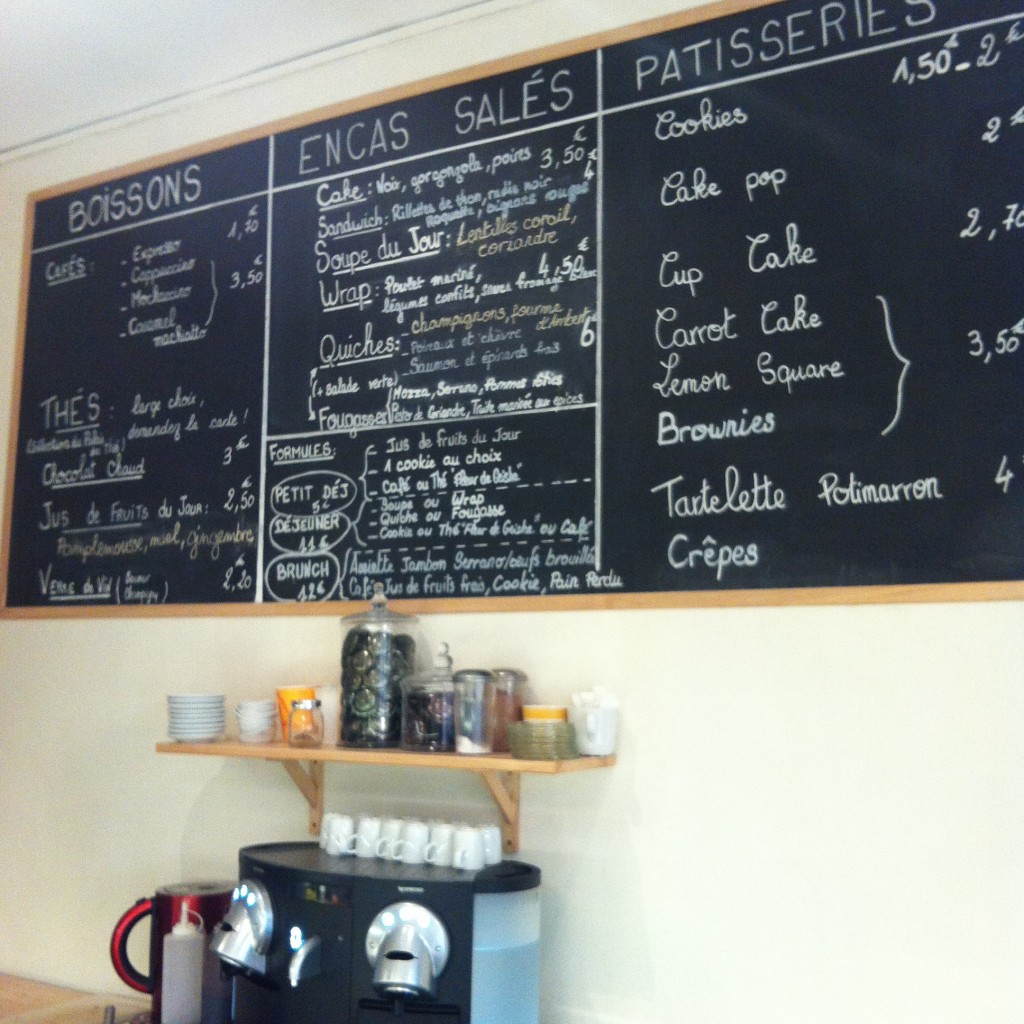 BOISSONS
CAFÉS:
- Expresso 1,70€
- Cappuccino
- Mochaccino 3,50€
- Caramel
machiatto
THÉS: large choix,
demandez la carte!
Chocolat Chaud 3€
JUS de FRUITS du JOUR: 2,50€
Pamplemousse, miel, gingembre
VERRE de VIN 2,20€
ENCAS SALÉS
Cake: Noix, gorgonzola, poires 3,50€
Sandwich: Rillettes de thon, radis noir 4€
Roquette, oignons rouges
Soupe du Jour: Lentilles corail,
coriandre
Wrap: Poulet mariné, 4,50€
légumes confits, sauce fromage blanc
Quiches: - champignons, fourme
d'Ambert
- Poireaux et chèvre 6
- Saumon et épinards frais
(+ salade verte)
Mozza, Serrano, Pommes rôties
Fougasses
FORMULES:
PETIT DÉJ
5€
- Jus de fruits du Jour
- 1 cookie au choix
- Café ou Thé "Fleur de Geisha"
DÉJEUNER
11€
- Soupe ou Wrap
- Quiche ou Fougasse
- Cookie ou Thé "Fleur de Geisha" ou Café
BRUNCH
12€
Assiette Jambon Serrano/oeufs brouillés
Café, Jus de fruits frais, Cookie, Pain Perdu
PATISSERIES
Cookies 1,50€ - 2€
Cake pop 2€
Cup Cake 2,70
Carrot Cake
Lemon Square 3,50€
Brownies
Tartelette Potimarron 4
Crêpes